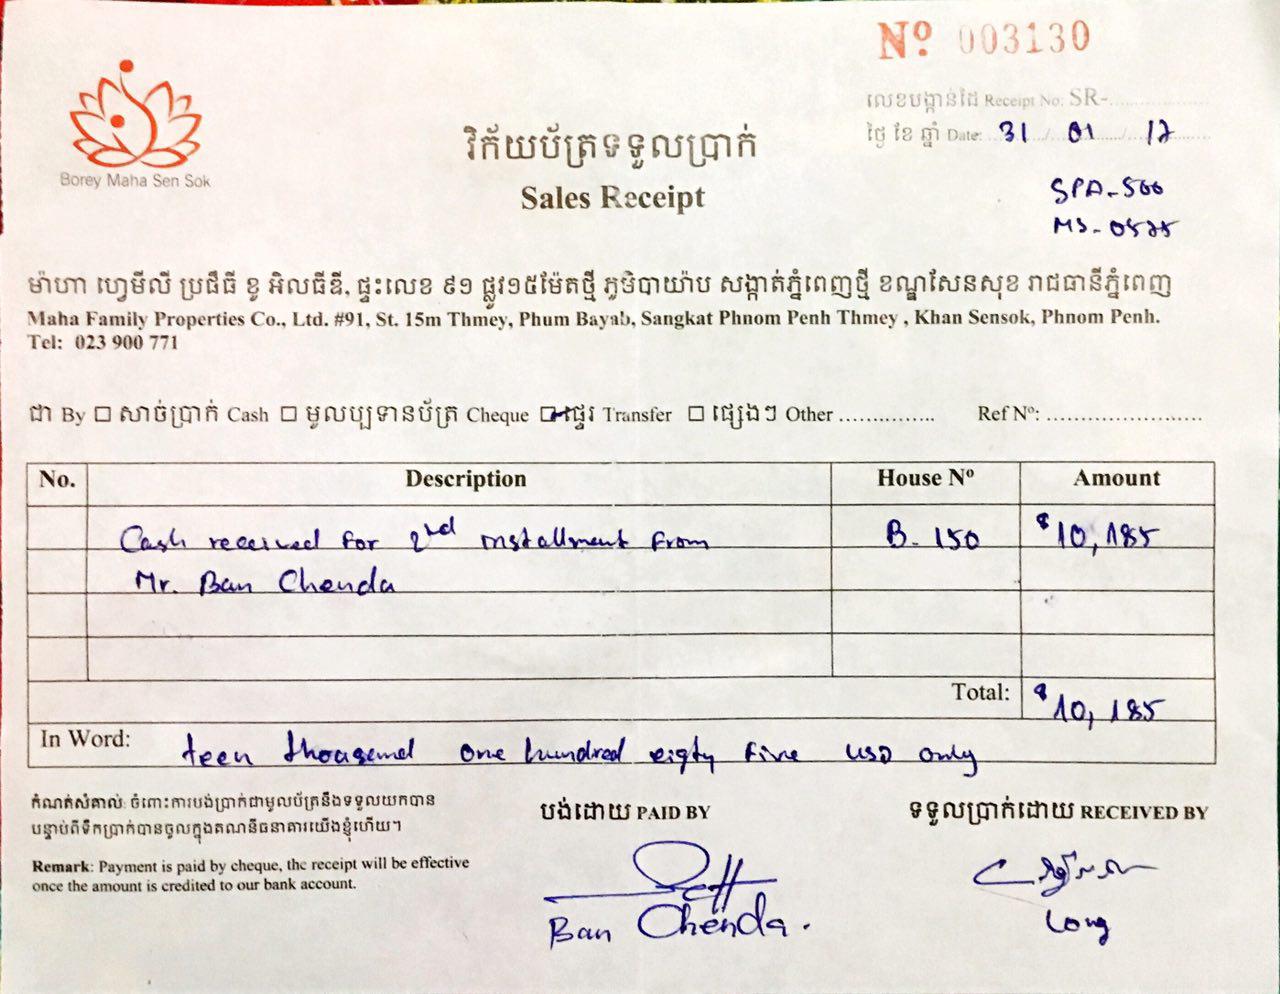 Nº 003130
Borey Maha Sen Sok
លេខបង្កាន់ដៃ Receipt No: SR-....................
ថ្ងៃ ខែ ឆ្នាំ Date: 31 / 01 / 17
វិក័យប័ត្រទទួលប្រាក់
Sales Receipt
SPA-500
MS-0525
ម៉ាហា ហ្វេមីលី ប្រផឹធី ខូ អិលធីឌី, ផ្ទះលេខ ៩១ ផ្លូវ១៥ម៉ែតថ្មី ភូមិបាយ៉ាប សង្កាត់ភ្នំពេញថ្មី ខណ្ឌសែនសុខ រាជធានីភ្នំពេញ
Maha Family Properties Co., Ltd. #91, St. 15m Thmey, Phum Bayab, Sangkat Phnom Penh Thmey , Khan Sensok, Phnom Penh.
Tel: 023 900 771
ជា By ☐ សាច់ប្រាក់ Cash ☐ មូលប្បទានប័ត្រ Cheque ☐ ផ្ទេរ Transfer ☐ ផ្សេងៗ Other ............... Ref Nº: ........................
No. Description House Nº Amount
Cash received for 2nd installment from B. 150 $10,185
Mr. Ban Chenda
Total: $10,185
In Word: teen thousand one hundred eigty five USD only
កំណត់សំគាល់: ចំពោះការបង់ប្រាក់ជាមូលប័ត្រនឹងទទួលយកបាន
បន្ទាប់ពីទឹកប្រាក់បានចូលក្នុងគណនីធនាគារយើងខ្ញុំហើយ។
Remark: Payment is paid by cheque, the receipt will be effective
once the amount is credited to our bank account.
បង់ដោយ PAID BY
Ban Chenda.
ទទួលប្រាក់ដោយ RECEIVED BY
Long